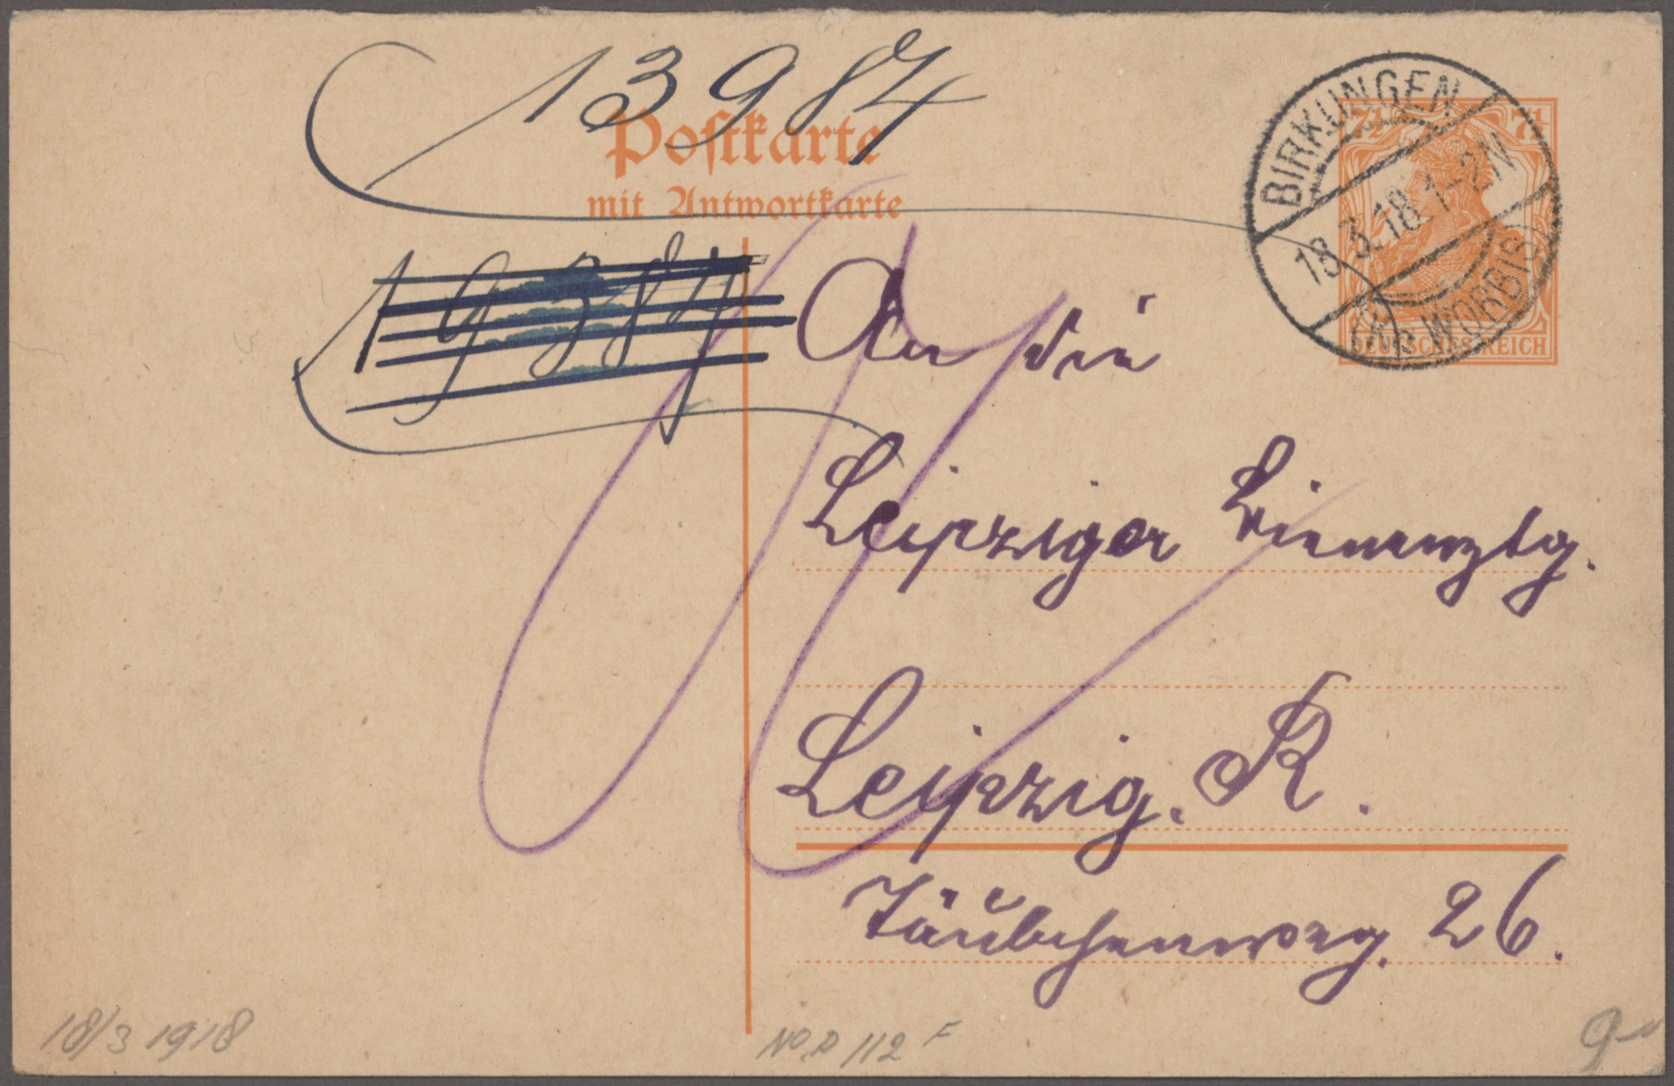 13984
Postkarte
mit Antwortkarte
BIRKUNGEN
18.3.18.1-2N
(Kr. WORBIS)
7½ 7½
DEUTSCHES REICH
19384
An die
Leipziger Bienenztg.
Leipzig. R.
Täubchenweg. 26.
18/3 1918
112 F